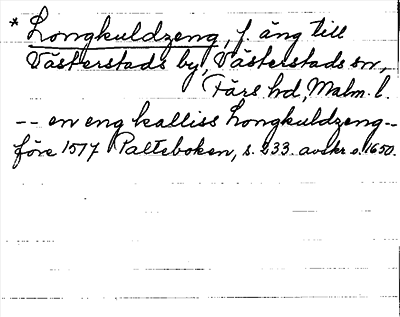 * Longkuldzeng, f. äng till
Västerstads by, Västerstads sn,
Färs hd, Malm. l.
-- en eng kalliss Longkuldzeng --
före 1577 Palteboken, s. 233. avskr o. 1650.